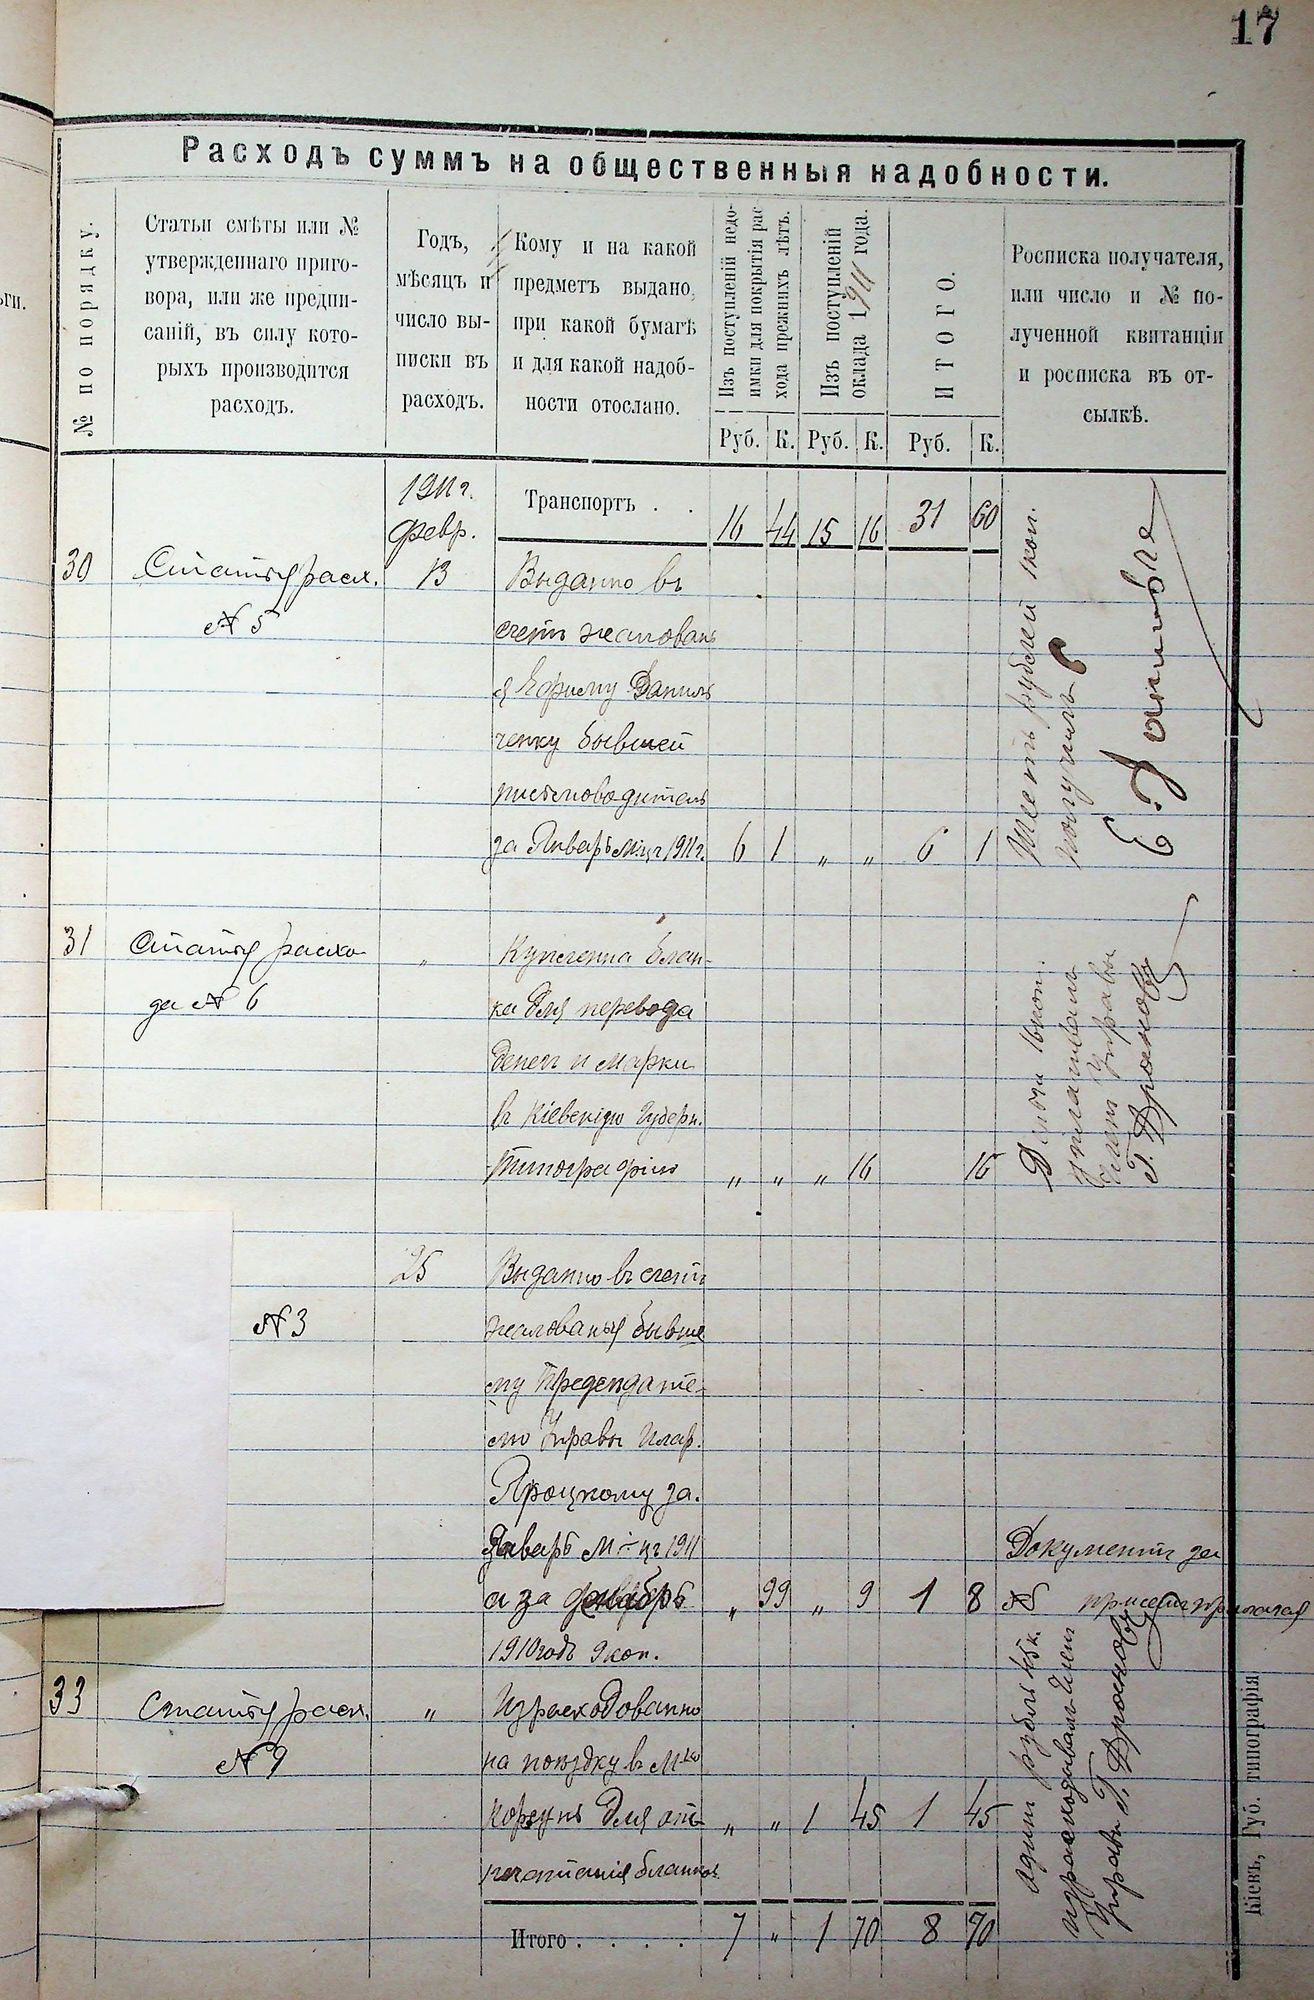 17
Расходъ суммъ на общественныя надобности.
№ по порядку.
Статьи смѣты или №
утвержденнаго приго-
вора, или же предпи-
саній, въ силу кото-
рыхъ производится
расходъ.
Годъ,
мѣсяцъ и
число вы-
писки въ
расходъ.
Кому и на какой
предметъ выдано,
при какой бумагѣ
и для какой надоб-
ности отослано.
Изъ поступленій недо-
имки для покрытія рас
хода прежнихъ лѣтъ.
Изъ поступленій
оклада 1911 года.
ИТОГО.
Росписка получателя,
или число и № по-
лученной квитанціи
и росписка въ от-
сылкѣ.
Руб. К. Руб. К. Руб. К.
1911 г.
февр.
Транспортъ . . 16 44 15 16 31 60
30 Статья расх. 13 Выданно въ
№ 5 счетъ жалован
я Ефиму Даниль
ченку бывшей
письмоводитель
за Январь м-цъ 1911 г. 6 1 „ „ 6 1
Шесть рублей 1 коп.
получилъ
31 Статья расхо „ Купленна блан-
да № 6 ка для перевода
денегъ и марки
въ Кіевскую Губерн.
типографію „ „ „ 16 16
уплатилъ
Членъ Управы
Г. Дроновъ
25 Выданно въ счетъ
№ 3 жалованья бывше
му Председате-
лю Управы Илар.
Яроцкому за
Январь м-цъ 1911
и за декабрь „ 99 „ 9 1 8
1910 годъ 9 коп.
Документъ за
№
33 Статья расх. „ Израсходованно
№ 9 на поездку въ М-ко
Корсунь для от- „ „ 1 45 1 45
печатанія бланковъ
Одинъ рубль 45 к.
израсходывалъ Членъ
Управы Г. Дроновъ
Итого . . . . 7 „ 1 70 8 70
Кіевъ, Губ. типографія